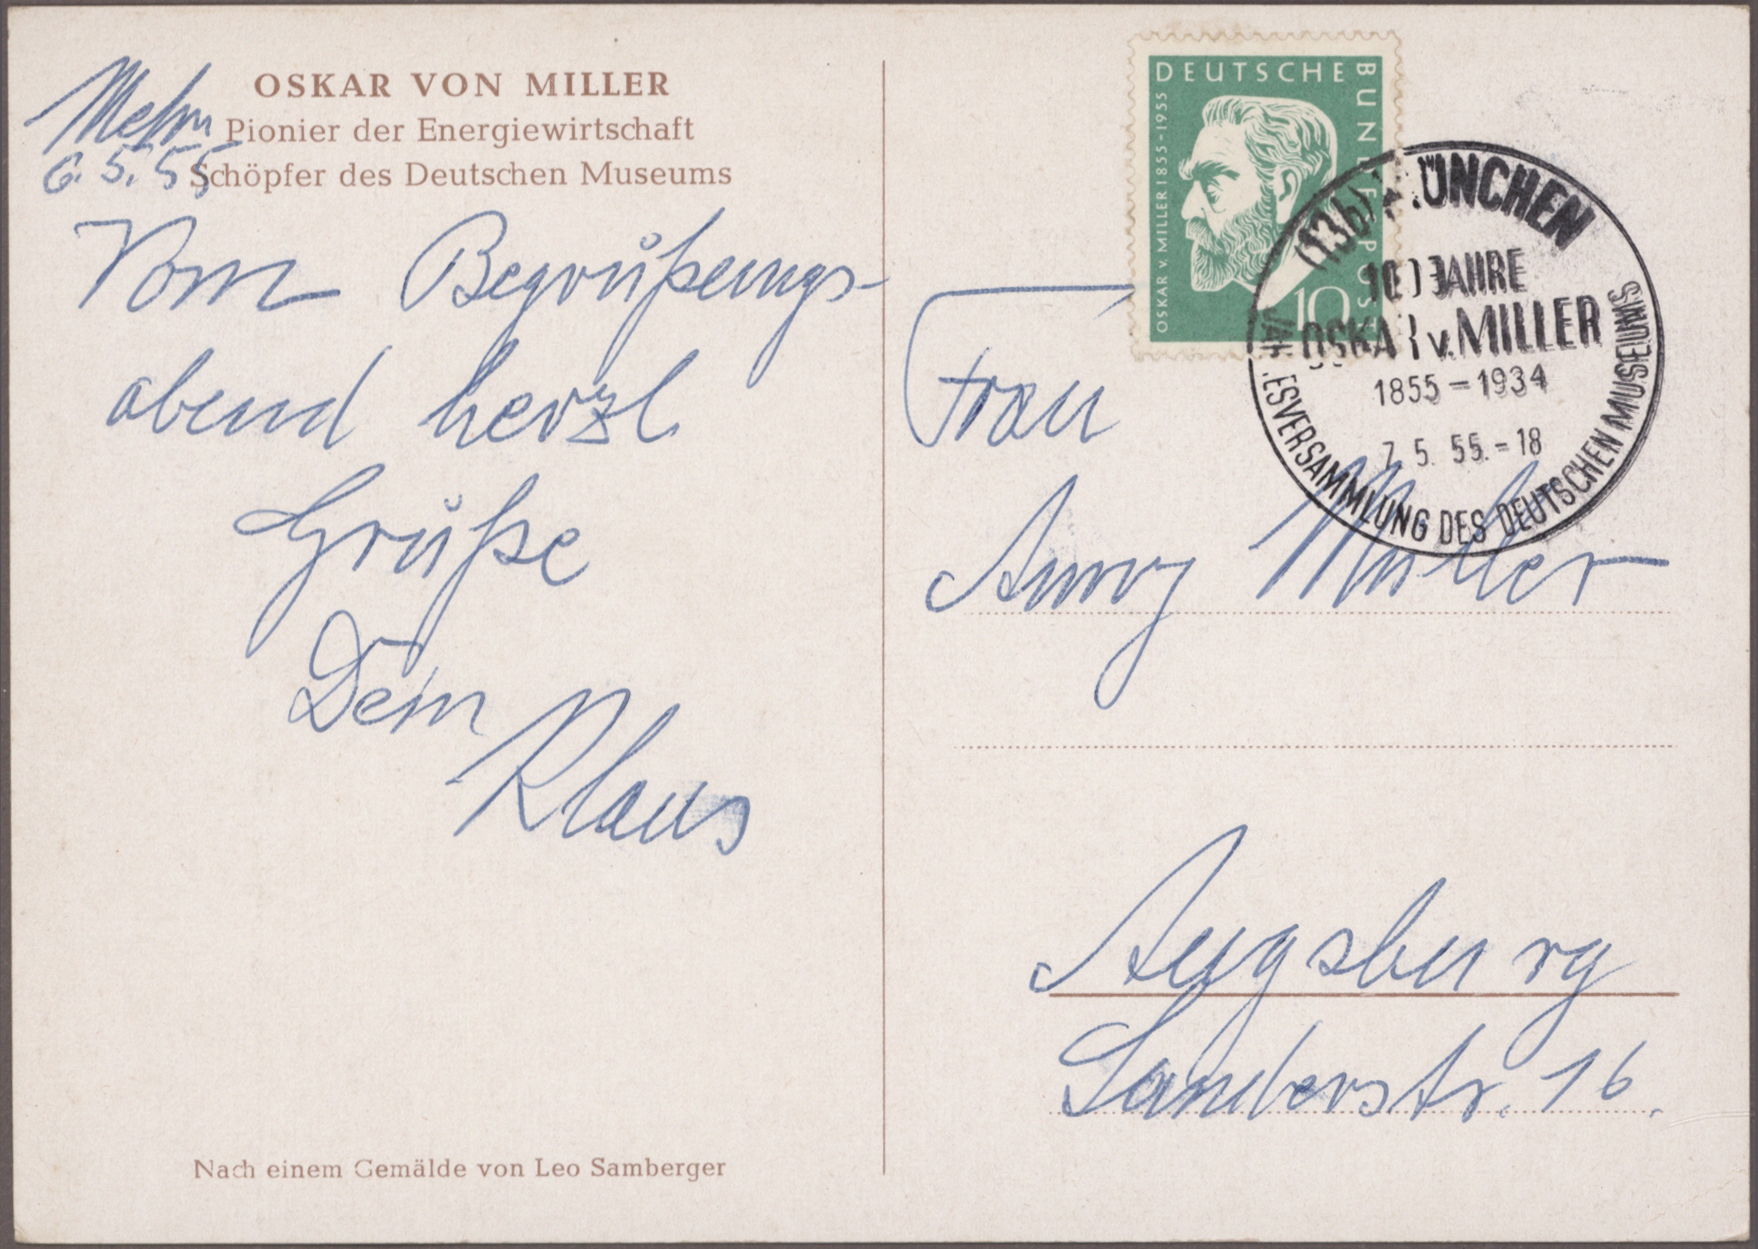 OSKAR VON MILLER
Pionier der Energiewirtschaft
Schöpfer des Deutschen Museums
6. 5. 55
Vom Begrüßungs-
abend herzl
Grüße
Dein
Klaus
Nach einem Gemälde von Leo Samberger
DEUTSCHE BUNDESPOST
OSKAR v. MILLER 1855-1955
10
(13b) MÜNCHEN
100 JAHRE
OSKAR v. MILLER
1855 - 1934
7. 5. 55. - 18
JAHRESVERSAMMLUNG DES DEUTSCHEN MUSEUMS
Frau
Anny Müller
Augsburg
Sanderstr. 16.